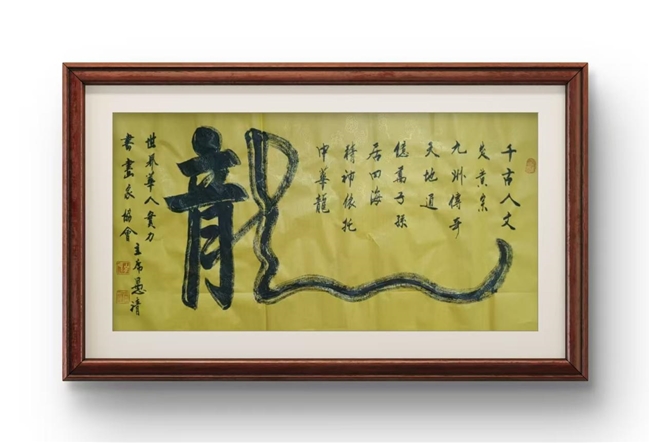 千古人文
炎黄宗
九州传奇
天地道
億萬子孫
居四海
精神依托
中華龍
龍
世界華人實力
書畫家協會
主席